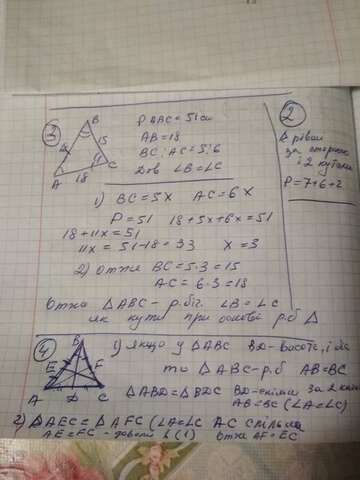 3
B
15
A 18 C
P ABC = 51 см
AB = 18
BC : AC = 5:6
Дов ∠B = ∠C
2
Δ рівні
за стороною
і 2 кутами
P = 7+6+2
1) BC = 5x AC = 6x
P = 51 18+5x+6x = 51
18+11x = 51
11x = 51-18 = 33 x = 3
2) отже BC = 5·3 = 15
AC = 6·3 = 18
Отже ΔABC - р.біч. ∠B = ∠C
як кути при основі р.б Δ
4
B
E F
A D C
1) Якщо у ΔABC BD - висота, і
то ΔABC - р.б AB = BC
ΔABD = ΔBDC BD - спільна за 2
AB = BC (∠A = ∠C)
2) ΔAEC = ΔAFC (∠A = ∠C AC спільна
AE = FC - довели в (1) Отже AF = EC